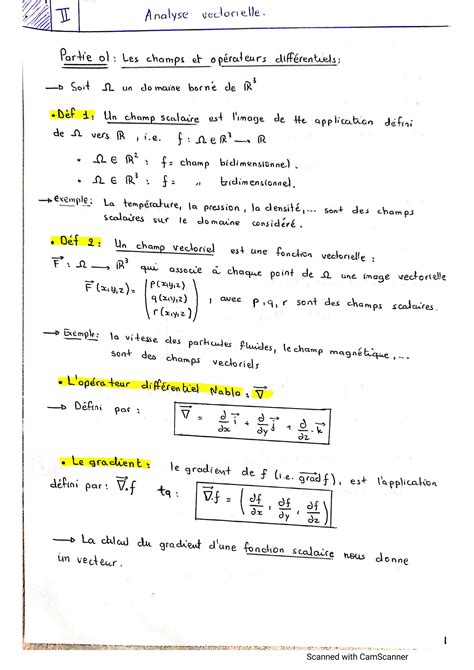 II Analyse vectorielle.
Partie 01: Les champs et opérateurs différentiels:
→ Soit Ω un domaine borné de ℝ³
• Déf 1: Un champ scalaire est l'image de tte application défini
de Ω vers ℝ, i.e. f: Ω ∈ ℝ³ → ℝ
• Ω ∈ ℝ² : f = champ bidimensionnel.
• Ω ∈ ℝ³ : f = " tridimensionnel.
→ exemple: La température, la pression, la densité,... sont des champs
scalaires sur le domaine considéré.
• Déf 2: Un champ vectoriel est une fonction vectorielle:
F⃗ : Ω → ℝ³ qui associe à chaque point de Ω une image vectorielle
F⃗(x,y,z) = (p(x,y,z) q(x,y,z) r(x,y,z)), avec p, q, r sont des champs scalaires.
→ Exemple: la vitesse des particules fluides, le champ magnétique,...
sont des champs vectoriels
• L'opérateur différentiel Nabla: ∇⃗
→ Défini par: ∇⃗ = ∂/∂x i⃗ + ∂/∂y j⃗ + ∂/∂z . k⃗
• Le gradient: le gradient de f (i.e. grad⃗ f), est l'application
défini par: ∇⃗.f tq: ∇⃗.f = (∂f/∂x, ∂f/∂y, ∂f/∂z)
→ La calcul du gradient d'une fonction scalaire nous donne
un vecteur.
1
Scanned with CamScanner